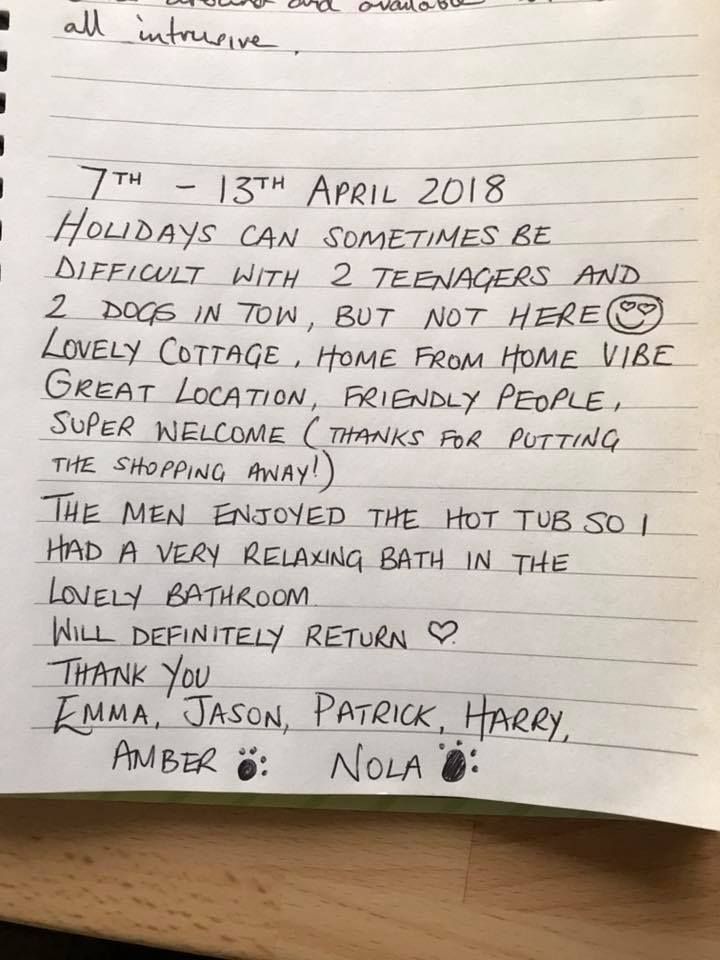 and available
all intrusive.
7TH - 13TH APRIL 2018
HOLIDAYS CAN SOMETIMES BE
DIFFICULT WITH 2 TEENAGERS AND
2 DOGS IN TOW, BUT NOT HERE
LOVELY COTTAGE, HOME FROM HOME VIBE
GREAT LOCATION, FRIENDLY PEOPLE,
SUPER WELCOME (THANKS FOR PUTTING
THE SHOPPING AWAY!)
THE MEN ENJOYED THE HOT TUB SO I
HAD A VERY RELAXING BATH IN THE
LOVELY BATHROOM.
WILL DEFINITELY RETURN ♡.
THANK YOU
EMMA, JASON, PATRICK, HARRY,
AMBER NOLA